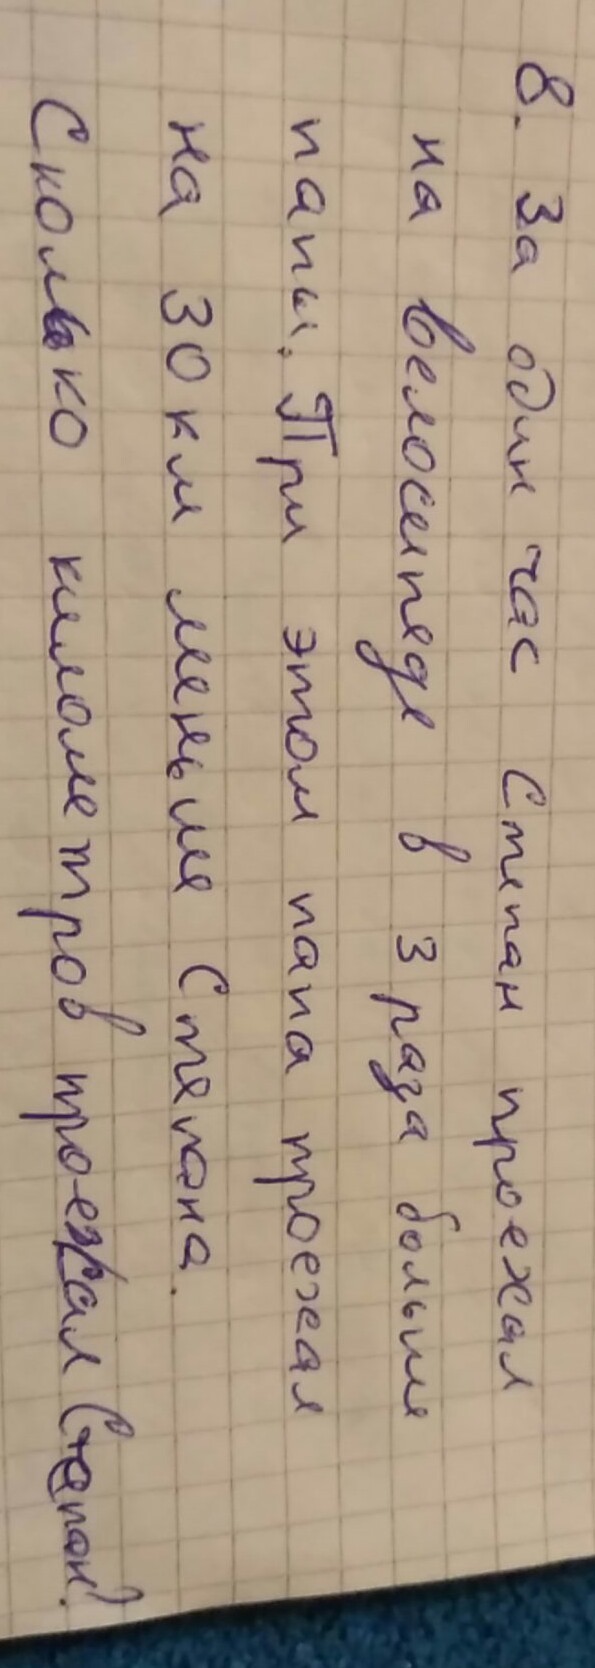 8. За один час Степан проехал
на велосипеде в 3 раза больше
папы. При этом папа проехал
на 30 км меньше Степана.
Сколько километров проехал Степан?